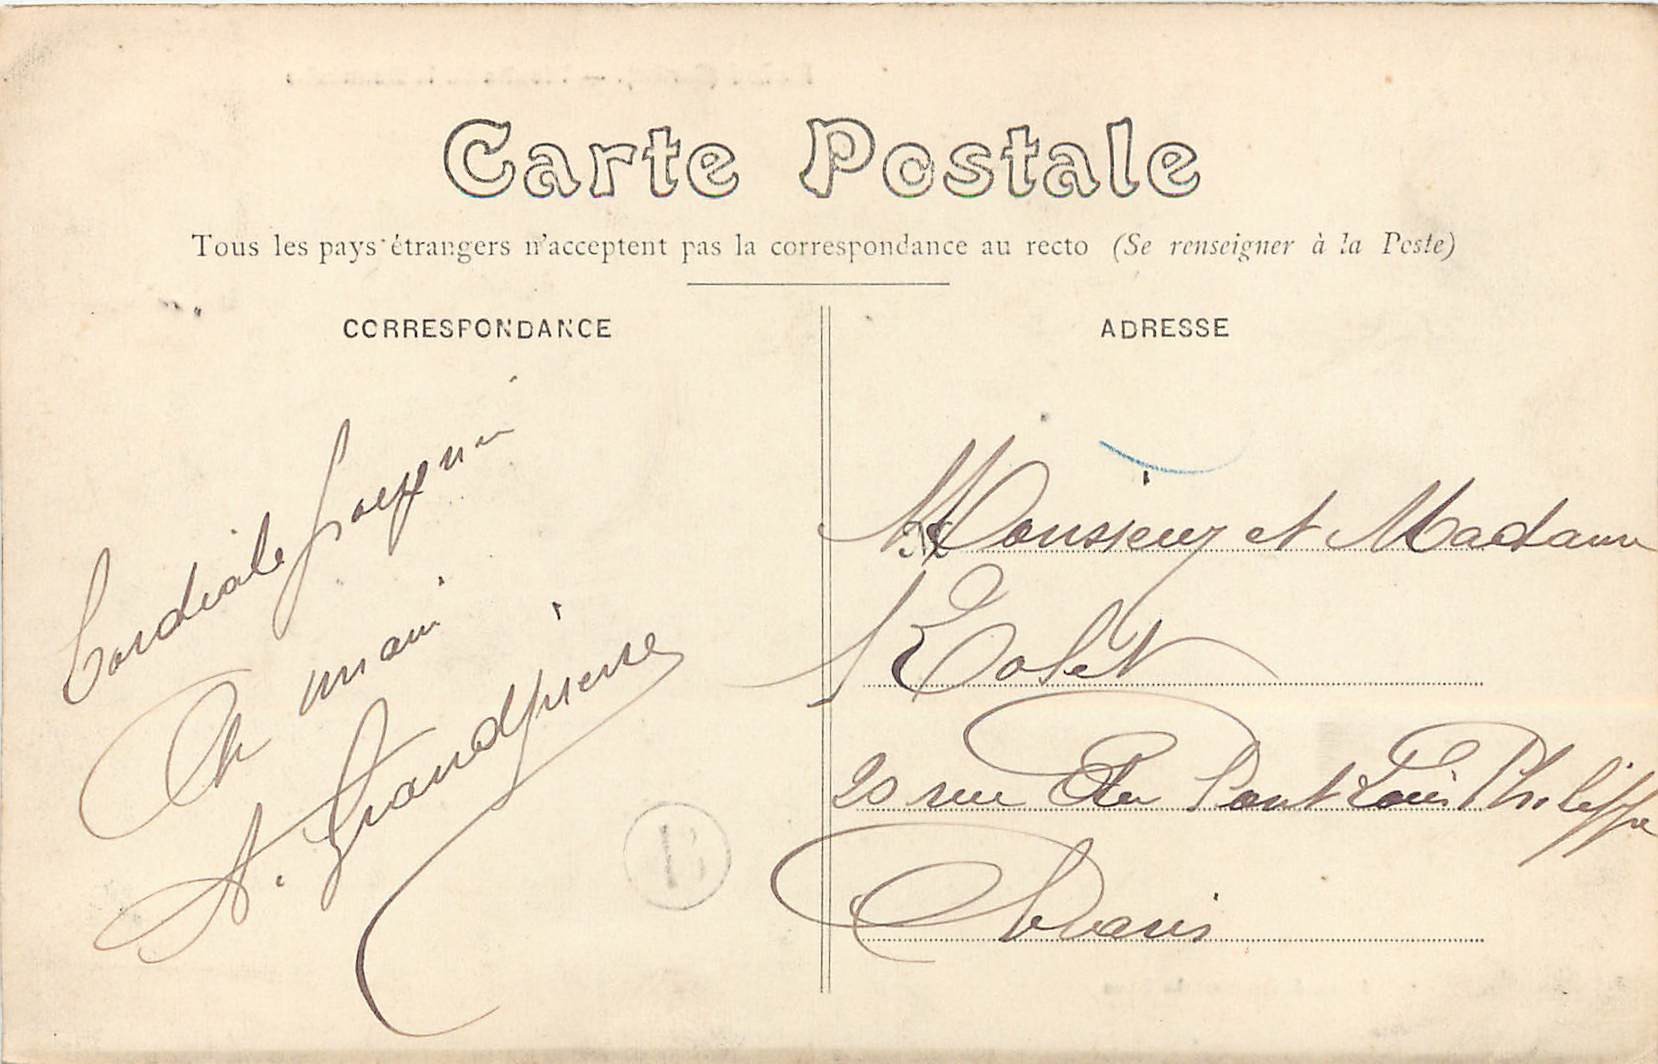 Carte Postale
Tous les pays étrangers n'acceptent pas la correspondance au recto (Se renseigner à la Poste)
CORRESPONDANCE
Cordiale
main
A. Grandpierre
ADRESSE
Monsieur et Madame
Tolet
20 rue du Pont Louis Philippe
Paris